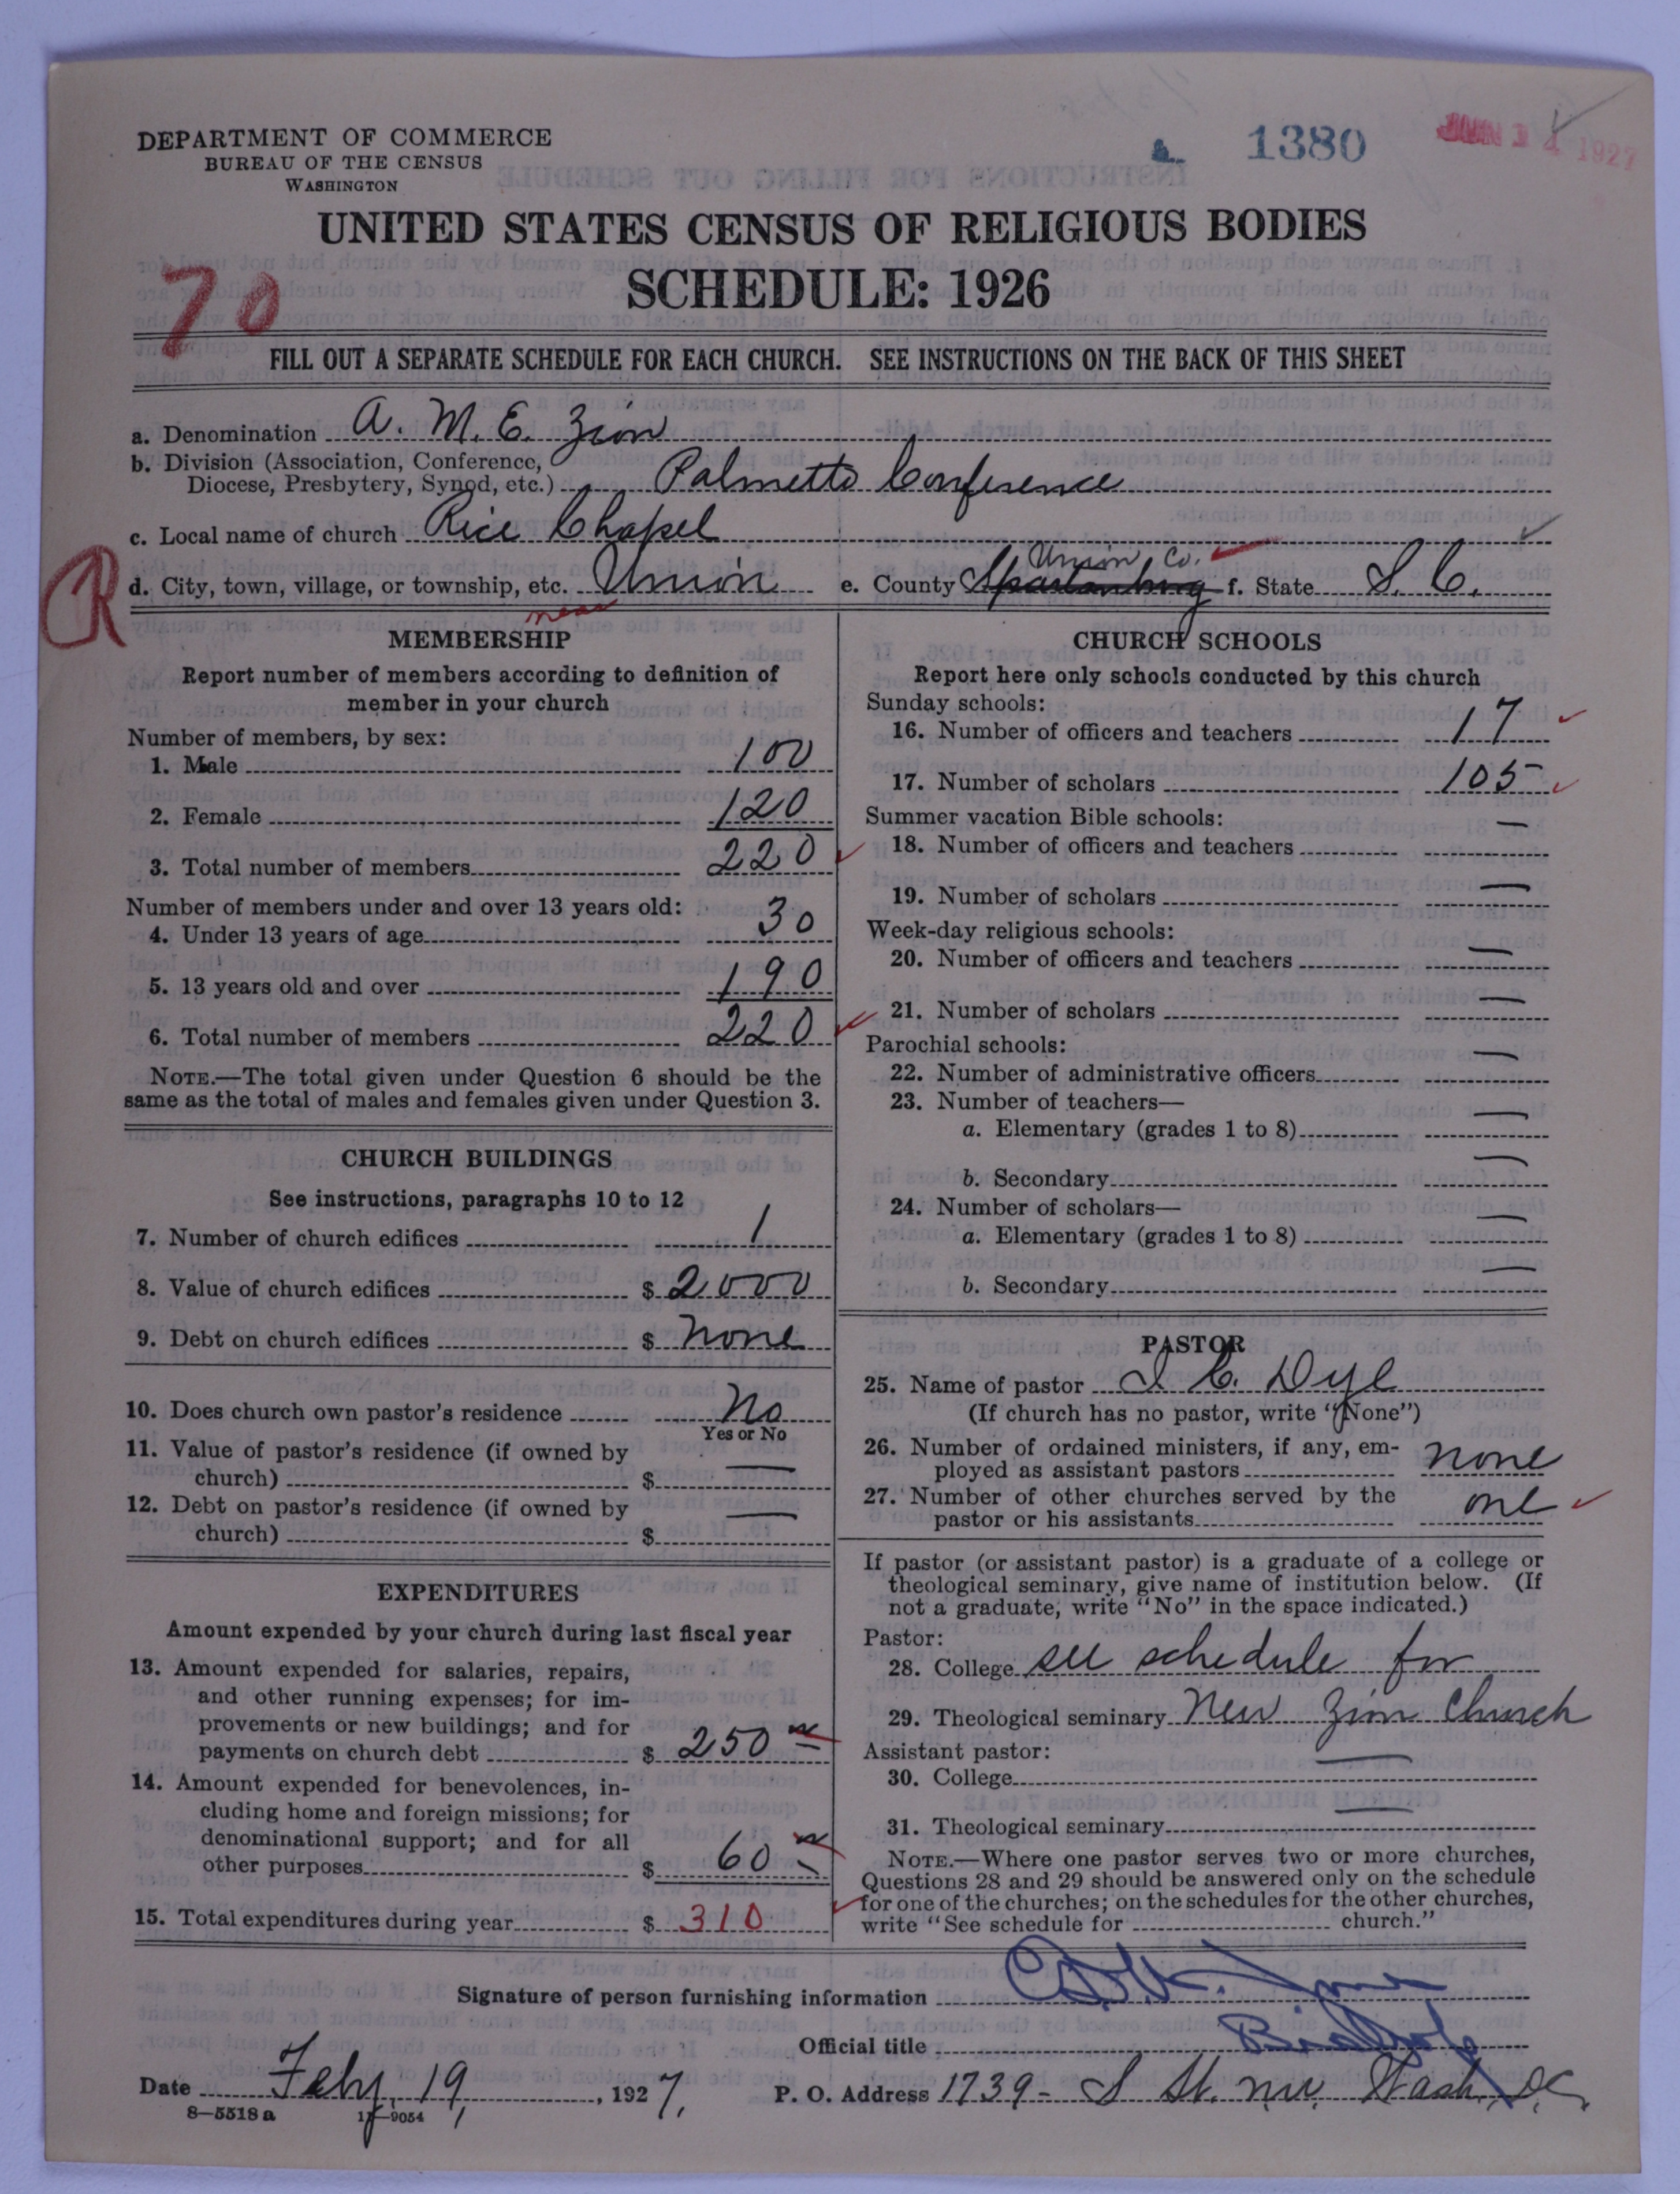 DEPARTMENT OF COMMERCE
BUREAU OF THE CENSUS
WASHINGTON
1380
JUN 14 1927
UNITED STATES CENSUS OF RELIGIOUS BODIES
SCHEDULE: 1926
70
FILL OUT A SEPARATE SCHEDULE FOR EACH CHURCH. SEE INSTRUCTIONS ON THE BACK OF THIS SHEET
a. Denomination A. M. E. Zion
b. Division (Association, Conference,
Diocese, Presbytery, Synod, etc.) Palmetto Conference
c. Local name of church Rice Chapel
R
d. City, town, village, or township, etc. Union e. County Spartanburg Union Co. f. State S. C.
near
MEMBERSHIP
Report number of members according to definition of
member in your church
Number of members, by sex:
1. Male 100
2. Female 120
3. Total number of members 220
Number of members under and over 13 years old:
4. Under 13 years of age 30
5. 13 years old and over 190
6. Total number of members 220
NOTE.—The total given under Question 6 should be the
same as the total of males and females given under Question 3.
CHURCH BUILDINGS
See instructions, paragraphs 10 to 12
7. Number of church edifices 1
8. Value of church edifices $ 2000
9. Debt on church edifices $ none
10. Does church own pastor's residence No
Yes or No
11. Value of pastor's residence (if owned by
church) $ —
12. Debt on pastor's residence (if owned by
church) $ —
EXPENDITURES
Amount expended by your church during last fiscal year
13. Amount expended for salaries, repairs,
and other running expenses; for im-
provements or new buildings; and for
payments on church debt $ 250
14. Amount expended for benevolences, in-
cluding home and foreign missions; for
denominational support; and for all
other purposes $ 60
15. Total expenditures during year $ 310
CHURCH SCHOOLS
Report here only schools conducted by this church
Sunday schools:
16. Number of officers and teachers 17
17. Number of scholars 105
Summer vacation Bible schools:
18. Number of officers and teachers —
19. Number of scholars —
Week-day religious schools:
20. Number of officers and teachers —
21. Number of scholars —
Parochial schools:
22. Number of administrative officers —
23. Number of teachers—
a. Elementary (grades 1 to 8) —
b. Secondary —
24. Number of scholars—
a. Elementary (grades 1 to 8) —
b. Secondary —
PASTOR
25. Name of pastor I C. Dye
(If church has no pastor, write "None")
26. Number of ordained ministers, if any, em-
ployed as assistant pastors none
27. Number of other churches served by the
pastor or his assistants one
If pastor (or assistant pastor) is a graduate of a college or
theological seminary, give name of institution below. (If
not a graduate, write "No" in the space indicated.)
Pastor:
28. College see schedule for
29. Theological seminary New Zion Church
Assistant pastor:
30. College —
31. Theological seminary —
NOTE.—Where one pastor serves two or more churches,
Questions 28 and 29 should be answered only on the schedule
for one of the churches; on the schedules for the other churches,
write "See schedule for church."
Signature of person furnishing information
Official title Bishop
Date Feby 19, 1927. P. O. Address 1739 - S St. N.W. Wash., D.C.
8—5518a 11—9054